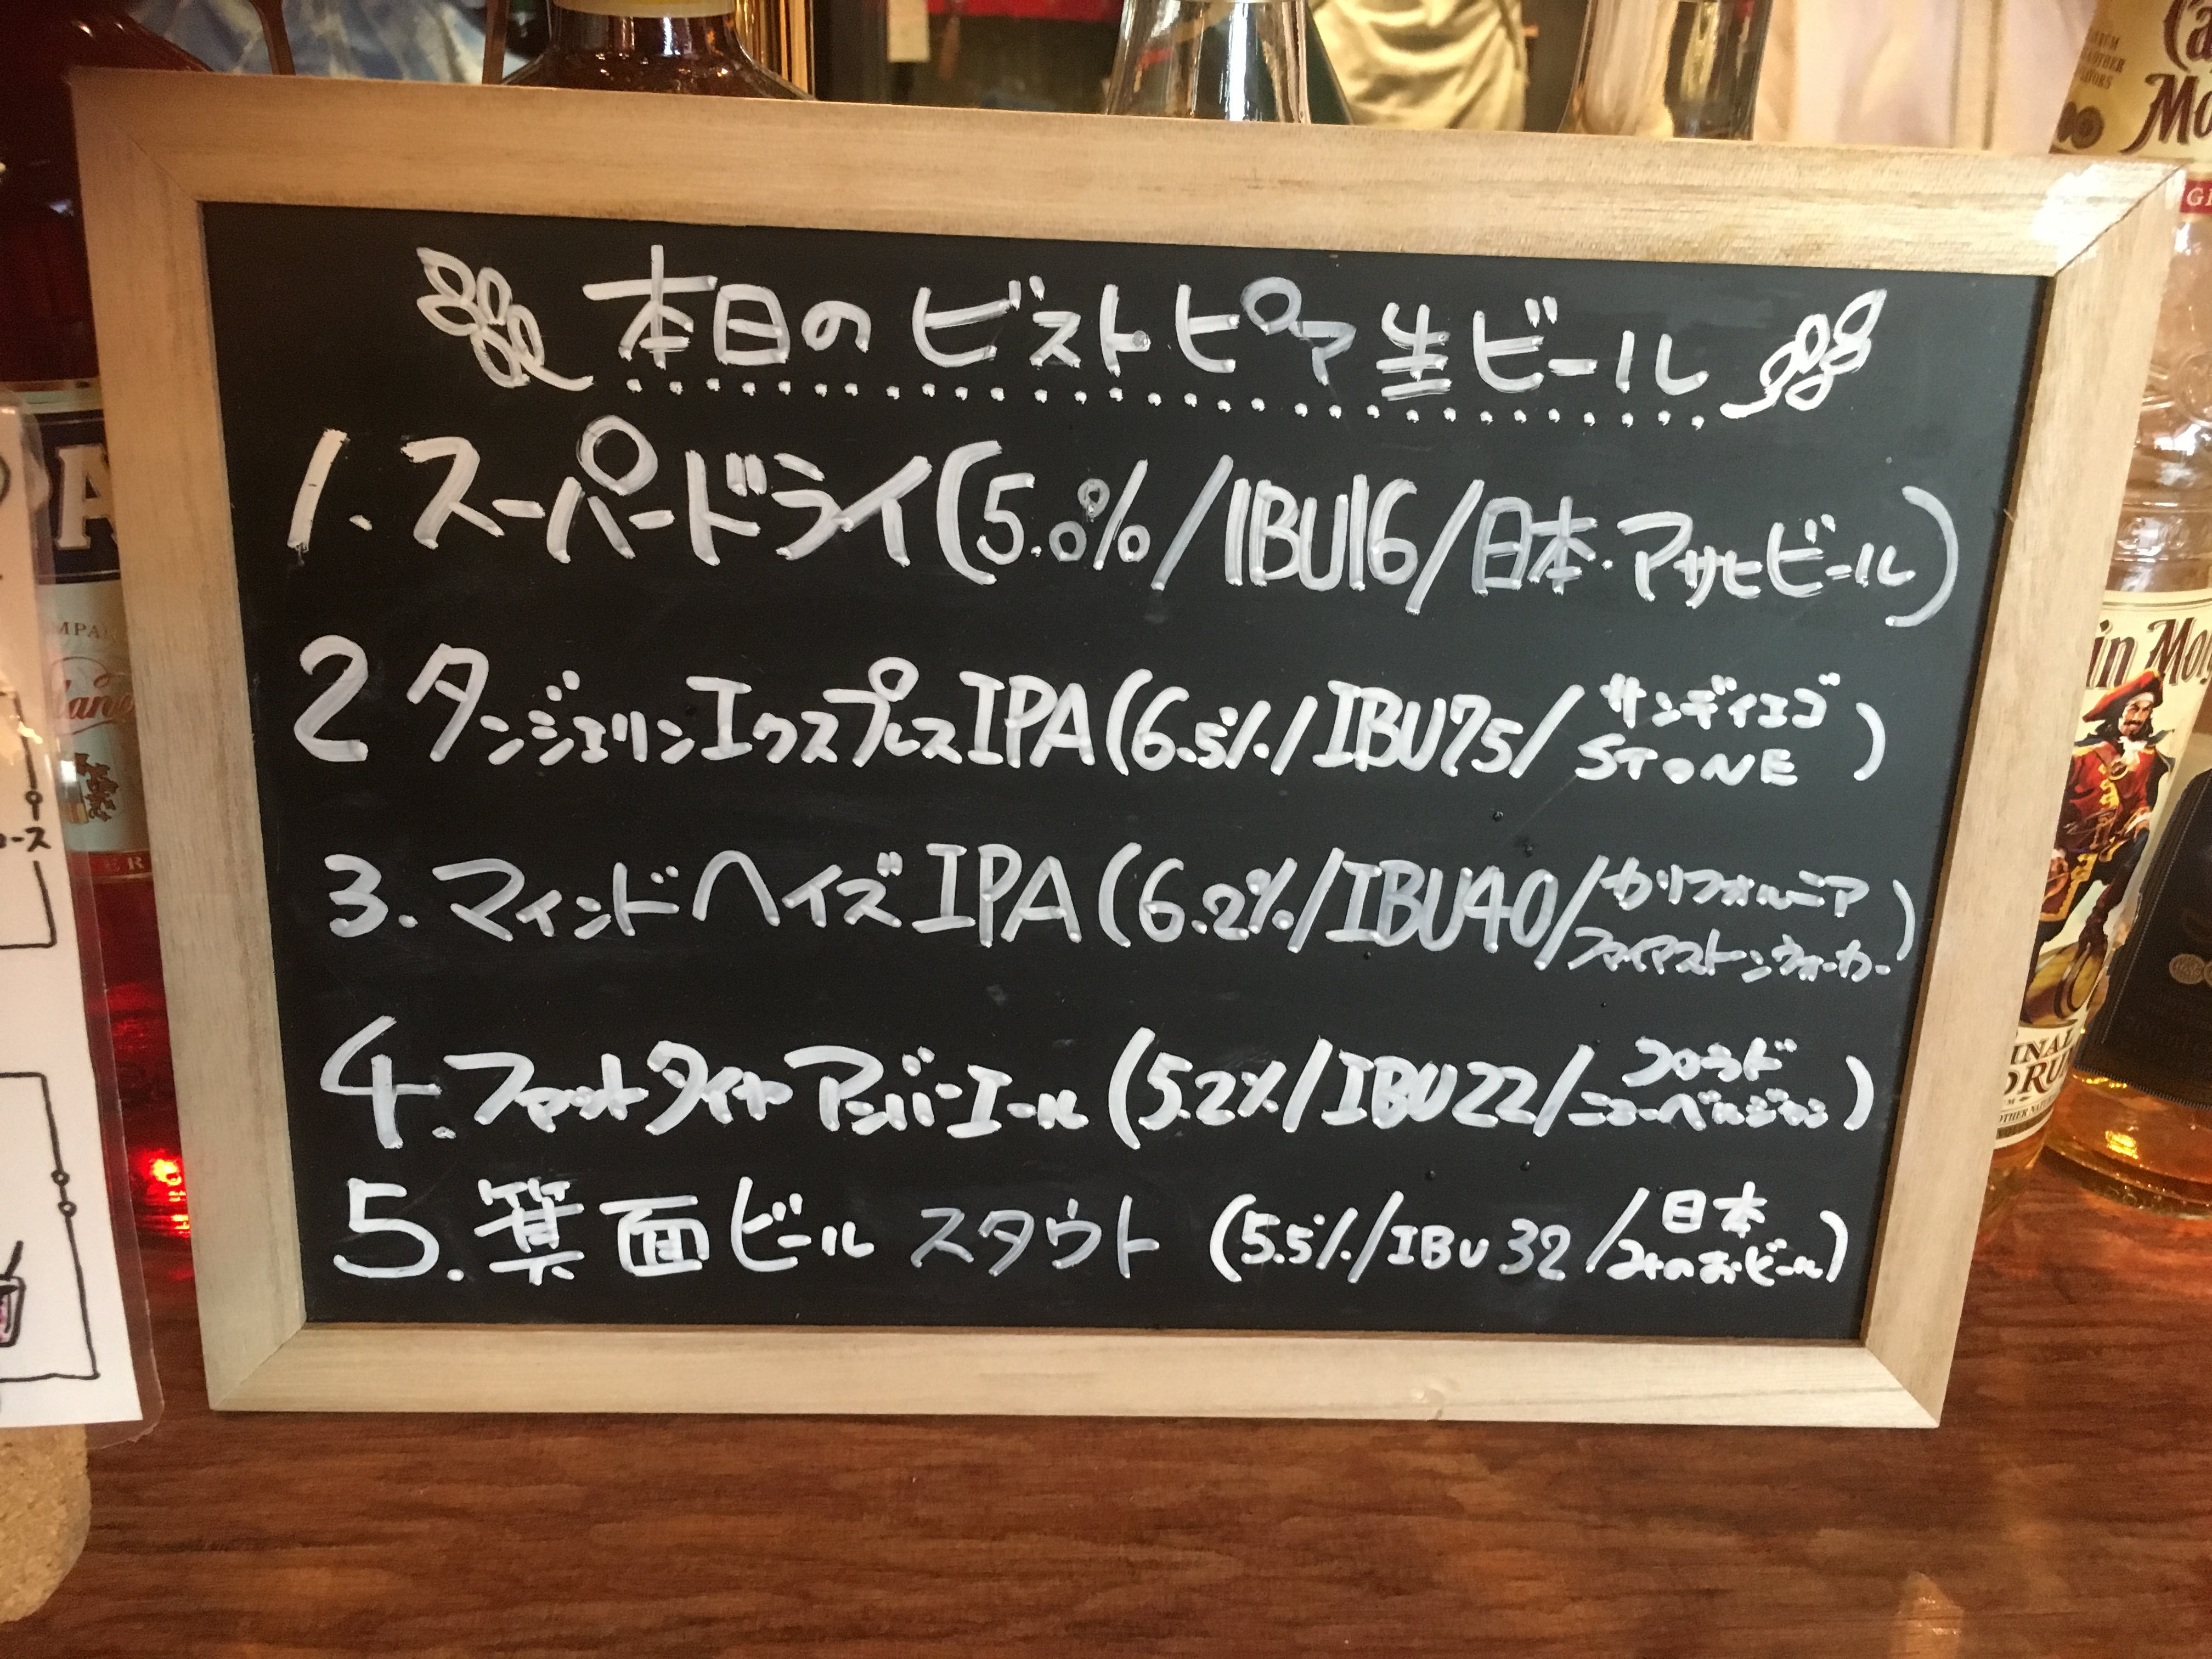 本日のビストピア生ビール
1. スーパードライ(5.0%/IBU16/日本・アサヒビール)
2 タンジェリンエクスプレスIPA(6.5%/IBU75/サンディエゴ
STONE)
3. マインドヘイズIPA(6.2%/IBU40/カリフォルニア
ファイアストーンウォーカー)
4. ファットタイヤアンバーエール(5.2%/IBU22/コロラド
ニューベルジャン)
5. 箕面ビール スタウト (5.5%/IBU 32/日本
みのおビール)
in Mor